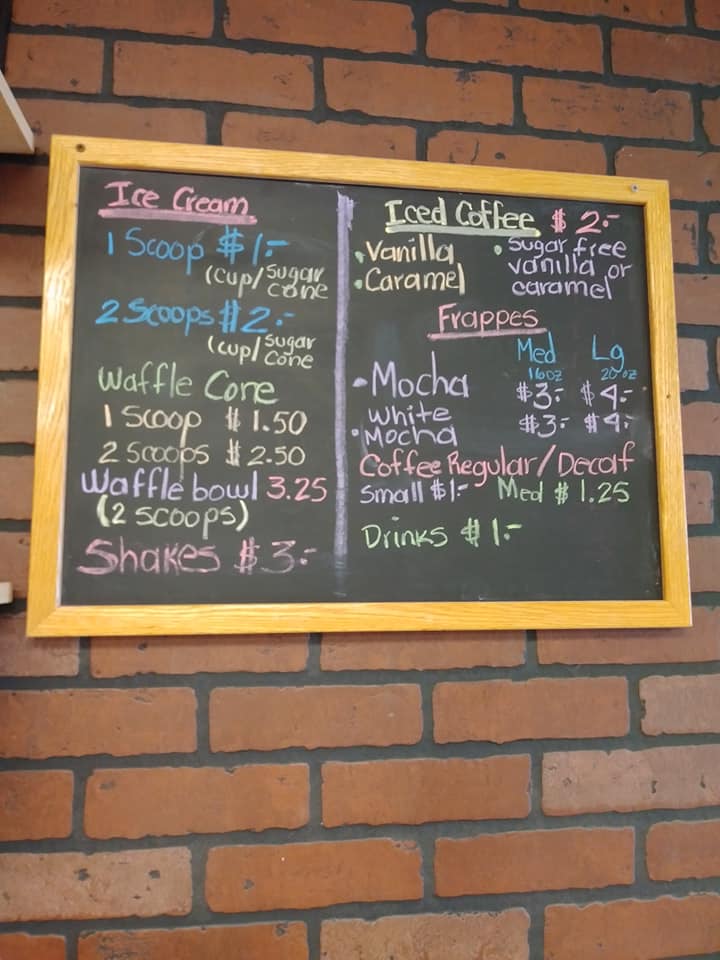 Ice Cream
1 Scoop $1.-
(cup/sugar
cone
2 Scoops $2.-
(cup/sugar
cone
Waffle Cone
1 Scoop $1.50
2 Scoops $2.50
Waffle bowl 3.25
(2 scoops)
Shakes $3.-
Iced Coffee $2.-
• Vanilla
• Caramel
• Sugar free
vanilla or
caramel
Frappes
Med Lg
16oz 20oz
• Mocha $3.- $4.-
• White $3.- $4.-
Mocha
Coffee Regular/Decaf
Small $1.- Med $1.25
Drinks $1.-